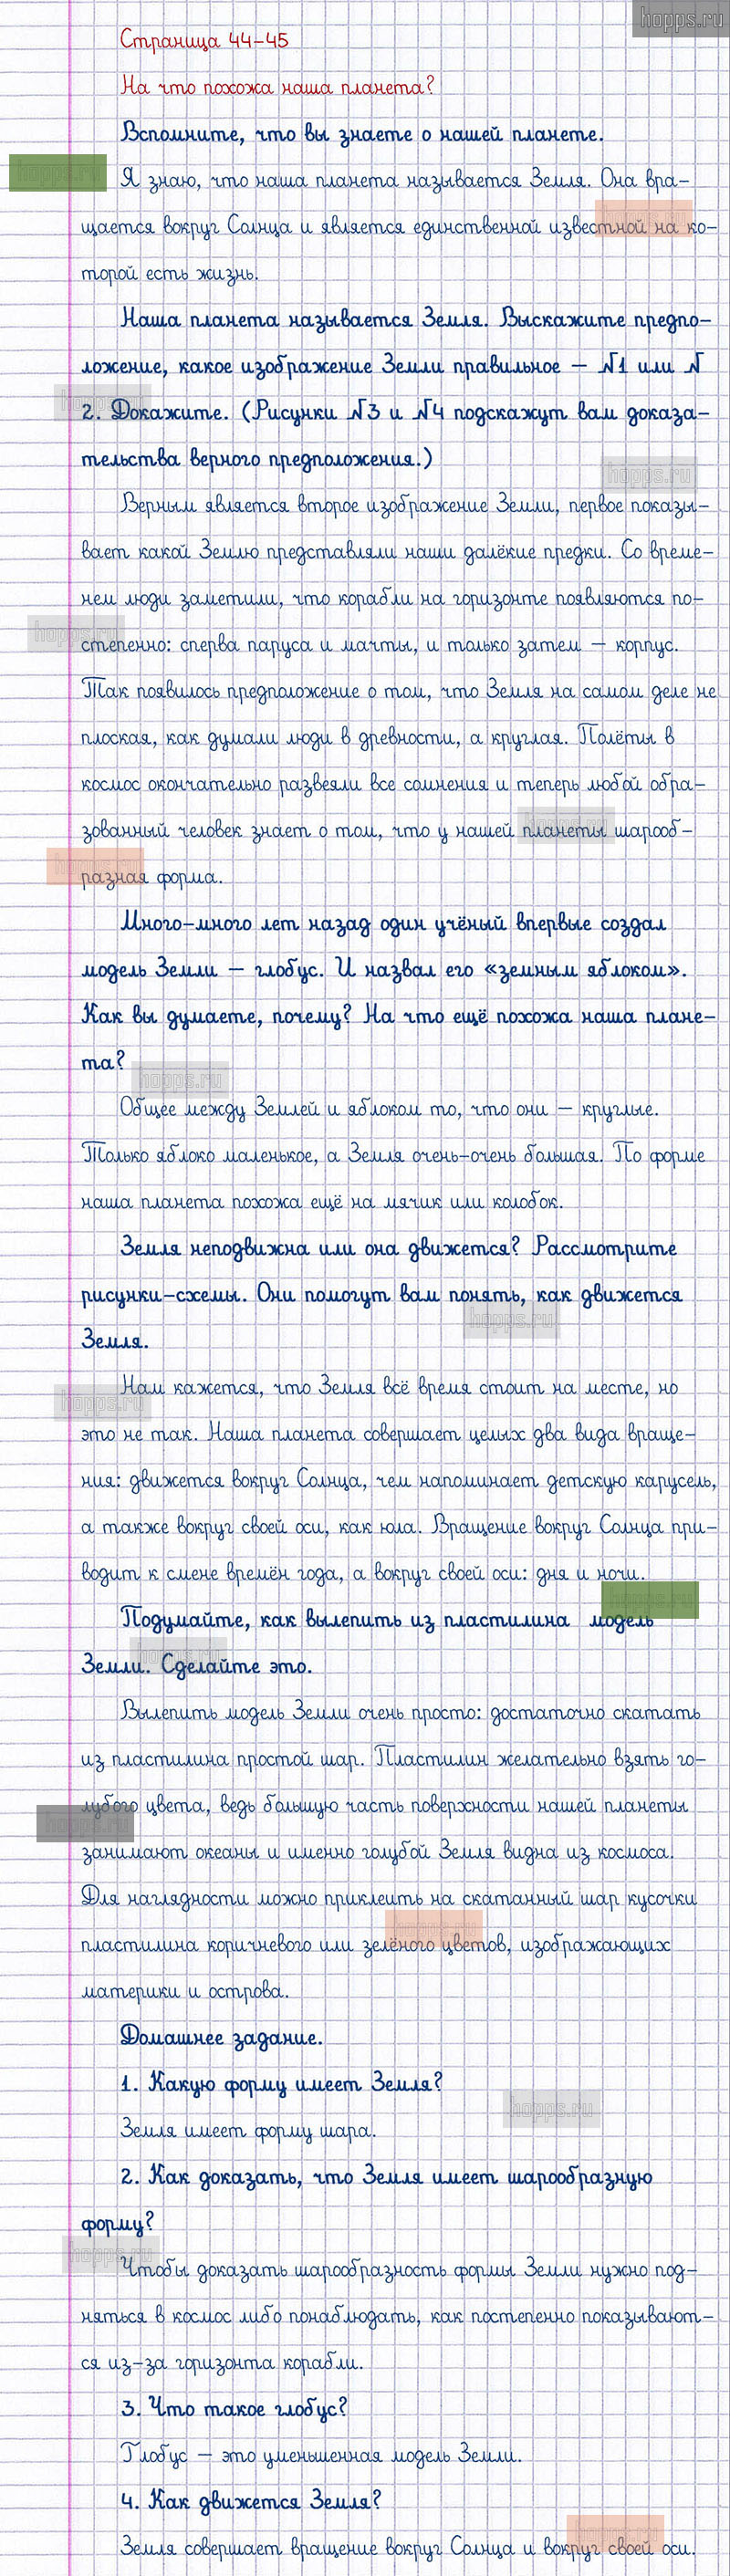 hopps.ru
Страница 44-45
На что похожа наша планета?
Вспомните, что вы знаете о нашей планете.
Я знаю, что наша планета называется Земля. Она вра-
щается вокруг Солнца и является единственной известной на ко-
торой есть жизнь.
Наша планета называется Земля. Выскажите предпо-
ложение, какое изображение Земли правильное – №1 или №
2. Докажите. (Рисунки №3 и №4 подскажут вам доказа-
тельства верного предположения.)
Верным является второе изображение Земли, первое показы-
вает какой Землю представляли наши далёкие предки. Со време-
нем люди заметили, что корабли на горизонте появляются по-
степенно: сперва паруса и мачты, и только затем – корпус.
Так появилось предположение о том, что Земля на самом деле не
плоская, как думали люди в древности, а круглая. Полёты в
космос окончательно развеяли все сомнения и теперь любой обра-
зованный человек знает о том, что у нашей планеты шарооб-
разная форма.
Много-много лет назад один учёный впервые создал
модель Земли – глобус. И назвал его «земным яблоком».
Как вы думаете, почему? На что ещё похожа наша плане-
та?
Общее между Землей и яблоком то, что они – круглые.
Только яблоко маленькое, а Земля очень-очень большая. По форме
наша планета похожа ещё на мячик или колобок.
Земля неподвижна или она движется? Рассмотрите
рисунки-схемы. Они помогут вам понять, как движется
Земля.
Нам кажется, что Земля всё время стоит на месте, но
это не так. Наша планета совершает целых два вида враще-
ния: движется вокруг Солнца, чем напоминает детскую карусель,
а также вокруг своей оси, как юла. Вращение вокруг Солнца при-
водит к смене времён года, а вокруг своей оси: дня и ночи.
Подумайте, как вылепить из пластилина модель
Земли. Сделайте это.
Вылепить модель Земли очень просто: достаточно скатать
из пластилина простой шар. Пластилин желательно взять го-
лубого цвета, ведь большую часть поверхности нашей планеты
занимают океаны и именно голубой Земля видна из космоса.
Для наглядности можно приклеить на скатанный шар кусочки
пластилина коричневого или зелёного цветов, изображающих
материки и острова.
Домашнее задание.
1. Какую форму имеет Земля?
Земля имеет форму шара.
2. Как доказать, что Земля имеет шарообразную
форму?
Чтобы доказать шарообразность формы Земли нужно под-
няться в космос либо понаблюдать, как постепенно показывают-
ся из-за горизонта корабли.
3. Что такое глобус?
Глобус – это уменьшенная модель Земли.
4. Как движется Земля?
Земля совершает вращение вокруг Солнца и вокруг своей оси.